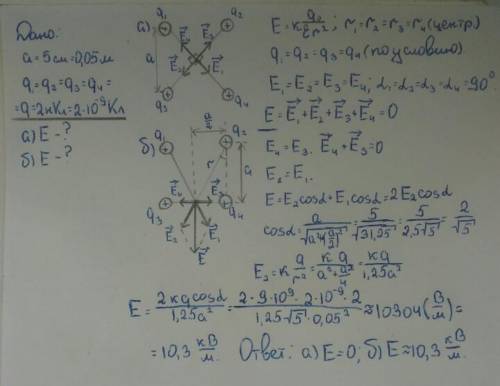 Дано:
a=5см=0,05м
q₁=q₂=q₃=q₄=
=q=2нКл=2·10⁻⁹Кл
а) E-?
б) E-?
а) q₁ q₂
a
E⃗₃ E⃗₄
E⃗₂ E⃗₁
q₃ q₄
a/2
б) q₁ q₂
r a
E⃗₄ E⃗₃
q₃ q₄
E⃗₂ E⃗₁
E⃗
E=k q₀/εr²; r₁=r₂=r₃=r₄(центр)
q₁=q₂=q₃=q₄(по условию)
E₁=E₂=E₃=E₄; α₁=α₂=α₃=α₄=90°
E=E⃗₁+E⃗₂+E⃗₃+E⃗₄=0
E₄=E₃. E⃗₄+E⃗₃=0
E₂=E₁.
E=E₂cosα+E₁cosα=2E₂cosα
cosα=a/√(a²+(a/2)²)=5/√31,25=5/2,5√5=2/√5
E₂=k q/r²=kq/(a²+a²/4)=kq/1,25a²
E=2kqcosα/1,25a²=2·9·10⁹·2·10⁻⁹·2/1,25·√5·0,05²≈10304(В/м)=
=10,3 кВ/м. Ответ: а) E=0; б) E≈10,3 кВ/м.